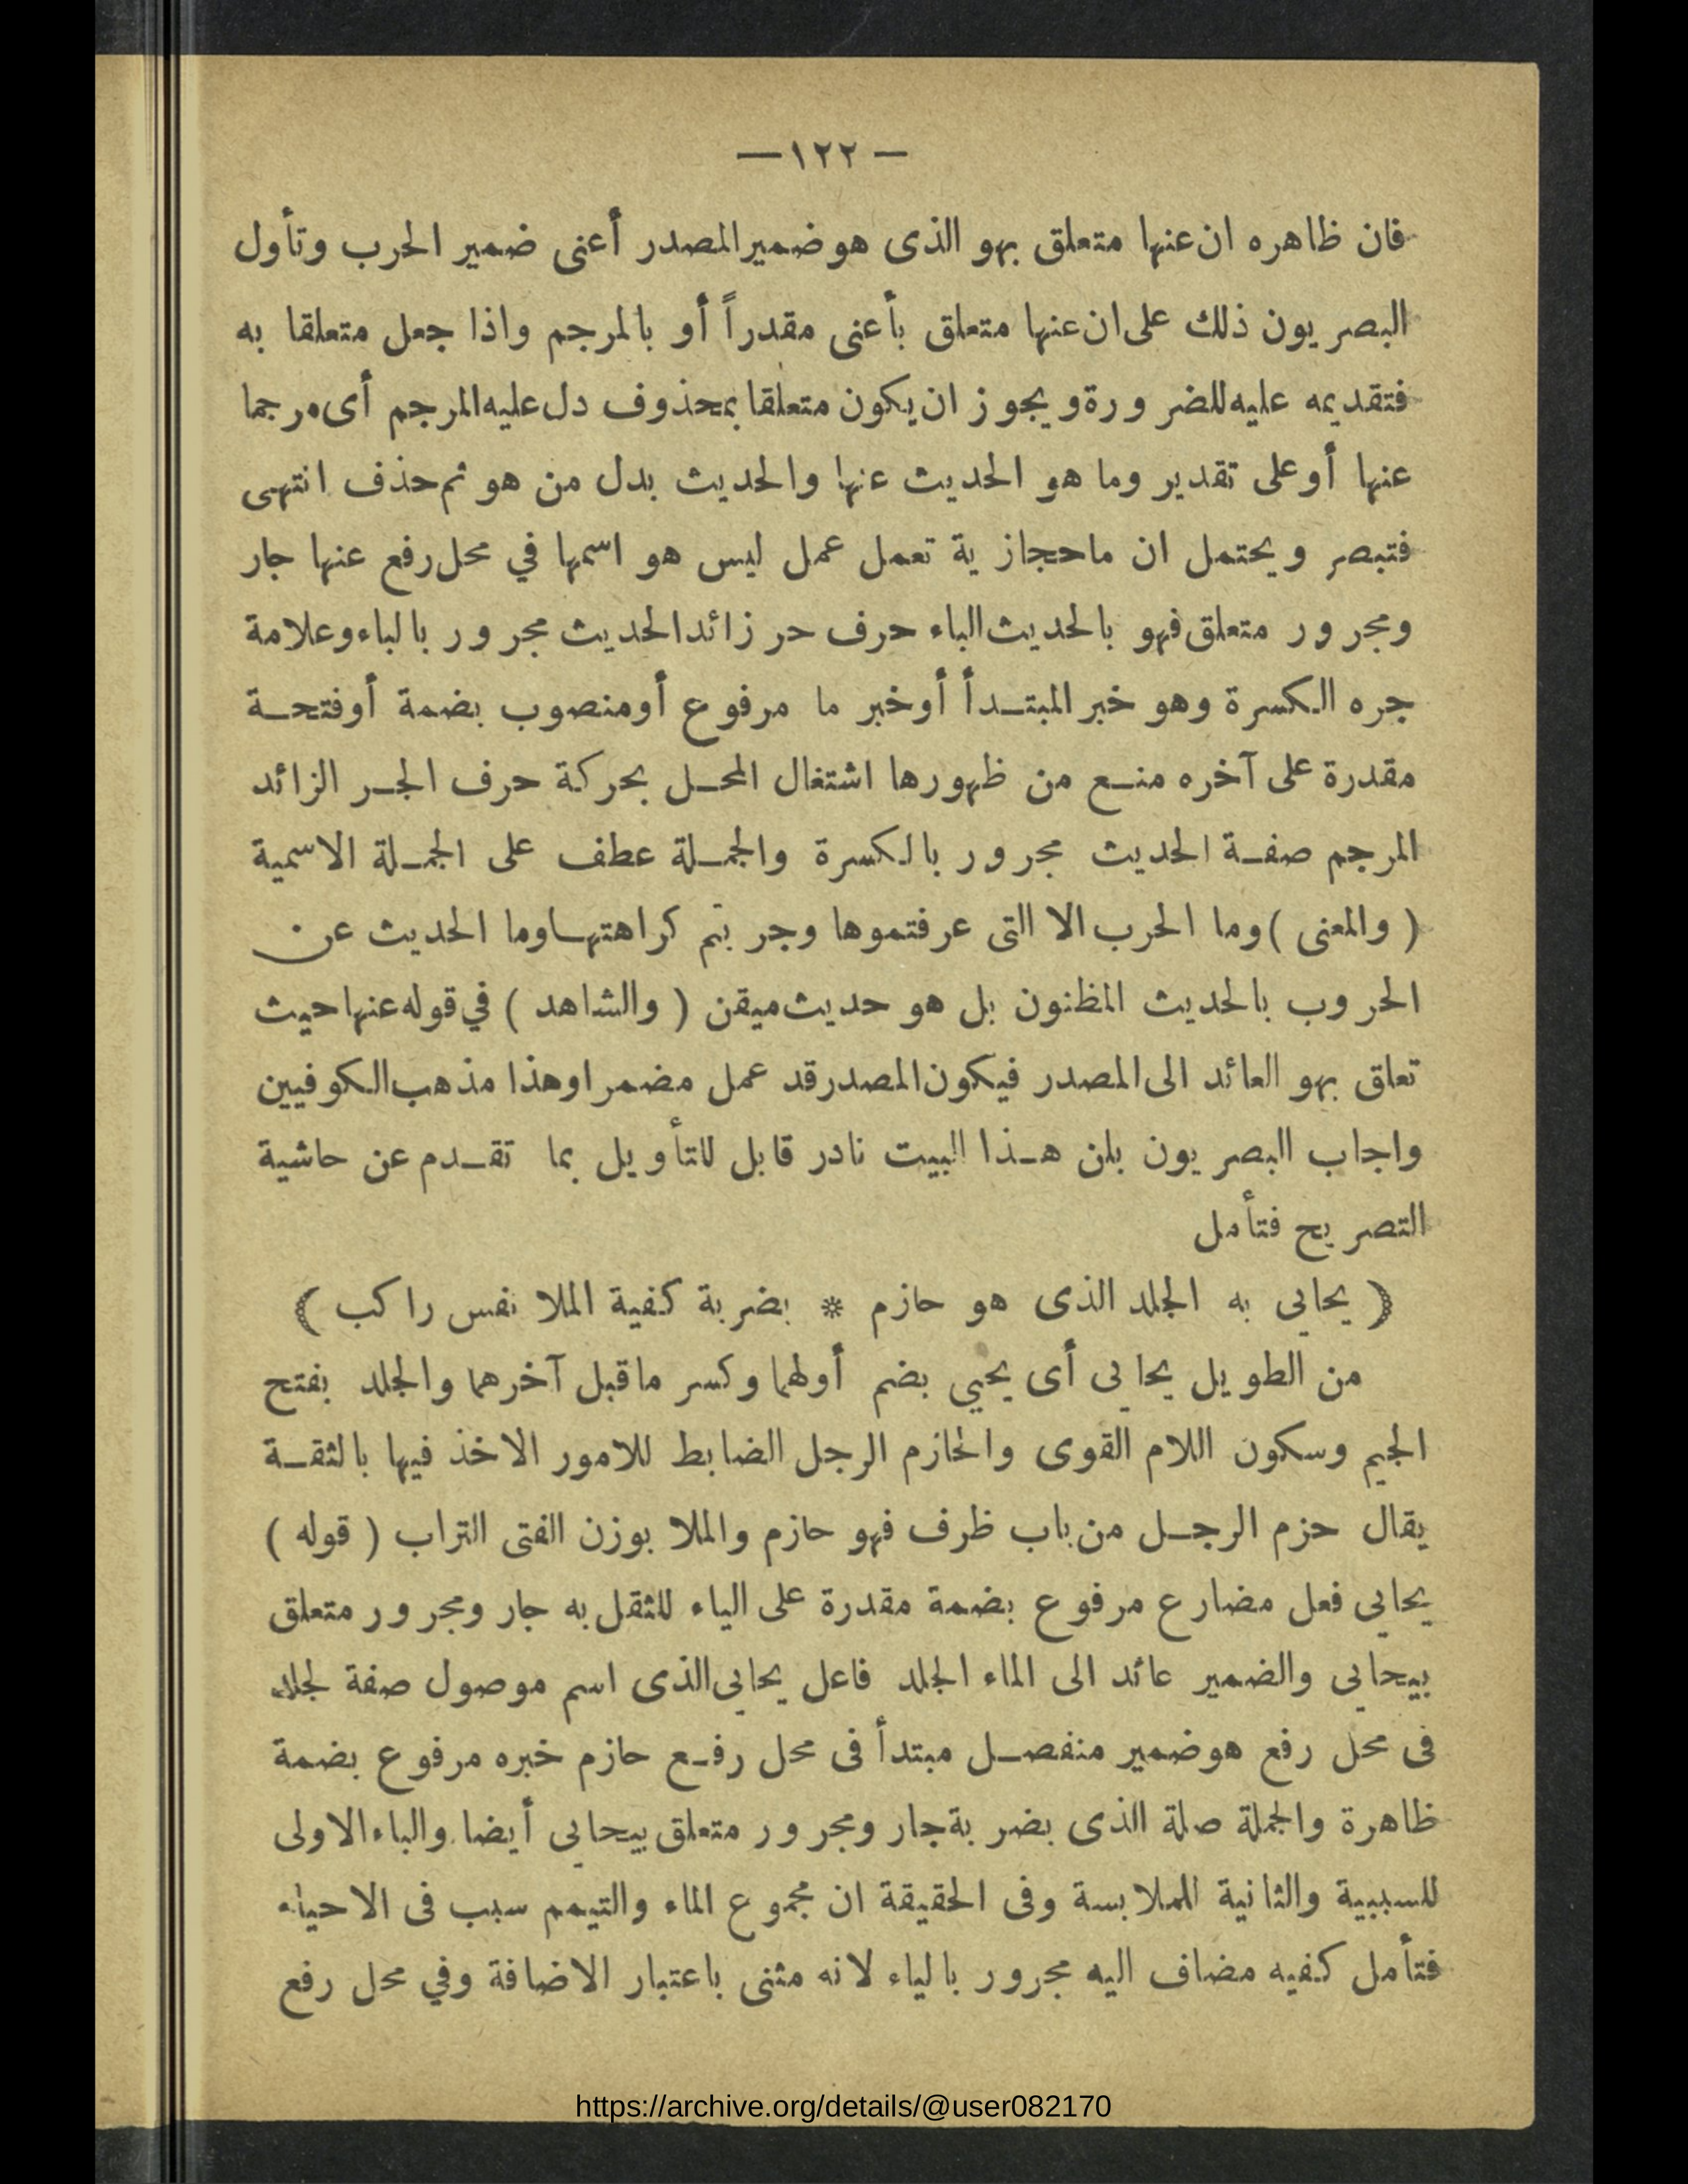 — ١٢٢ —
فان ظاهره ان عنها متعلق بهو الذى هو ضمير المصدر أعنى ضمير الحرب وتأول
البصريون ذلك على ان عنها متعلق بأعنى مقدراً أو بالمرجم واذا جعل متعلقا به
فتقديمه عليه للضرورة ويجوز ان يكون متعلقا بمحذوف دل عليه المرجم أى مرجما
عنها أو على تقدير وما هو الحديث عنها والحديث بدل من هو ثم حذف انتهى
فتبصر ويحتمل ان ما حجازية تعمل عمل ليس هو اسمها في محل رفع عنها جار
ومجرور متعلق فهو بالحديث الباء حرف حر زائد الحديث مجرور بالباء وعلامة
جره الكسرة وهو خبر المبتـدأ أو خبر ما مرفوع أو منصوب بضمة أو فتحـة
مقدرة على آخره منـع من ظهورها اشتغال المحـل بحركة حرف الجـر الزائد
المرجم صفـة الحديث مجرور بالكسرة والجمـلة عطف على الجمـلة الاسمية
( والمعنى ) وما الحرب الا التى عرفتموها وجربتم كراهتهـا وما الحديث عن
الحروب بالحديث المظنون بل هو حديث ميقن ( والشاهد ) في قوله عنها حيث
تعلق بهو العائد الى المصدر فيكون المصدر قد عمل مضمرا وهذا مذهب الكوفيين
واجاب البصريون بان هـذا البيت نادر قابل للتأويل بما تقـدم عن حاشية
التصريح فتأمل
( يحايى به الجلد الذى هو حازم * بضربة كفية الملا نفس راكب )
من الطويل يحايى أى يحيي بضم أولهما وكسر ما قبل آخرهما والجلد بفتح
الجيم وسكون اللام القوى والحازم الرجل الضابط للامور الاخذ فيها بالثقـة
يقال حزم الرجـل من باب ظرف فهو حازم والملا بوزن الفتى التراب ( قوله )
يحايى فعل مضارع مرفوع بضمة مقدرة على الياء للثقل به جار ومجرور متعلق
بيحايى والضمير عائد الى الماء الجلد فاعل يحايى الذى اسم موصول صفة لجلد
فى محل رفع هو ضمير منفصـل مبتدأ فى محل رفـع حازم خبره مرفوع بضمة
ظاهرة والجملة صلة الذى بضربة جار ومجرور متعلق بيحايى أيضا والباء الاولى
للسببية والثانية للملابسة وفى الحقيقة ان مجموع الماء والتيمم سبب فى الاحياء
فتأمل كفيه مضاف اليه مجرور بالياء لانه مثنى باعتبار الاضافة وفي محل رفع
https://archive.org/details/@user082170